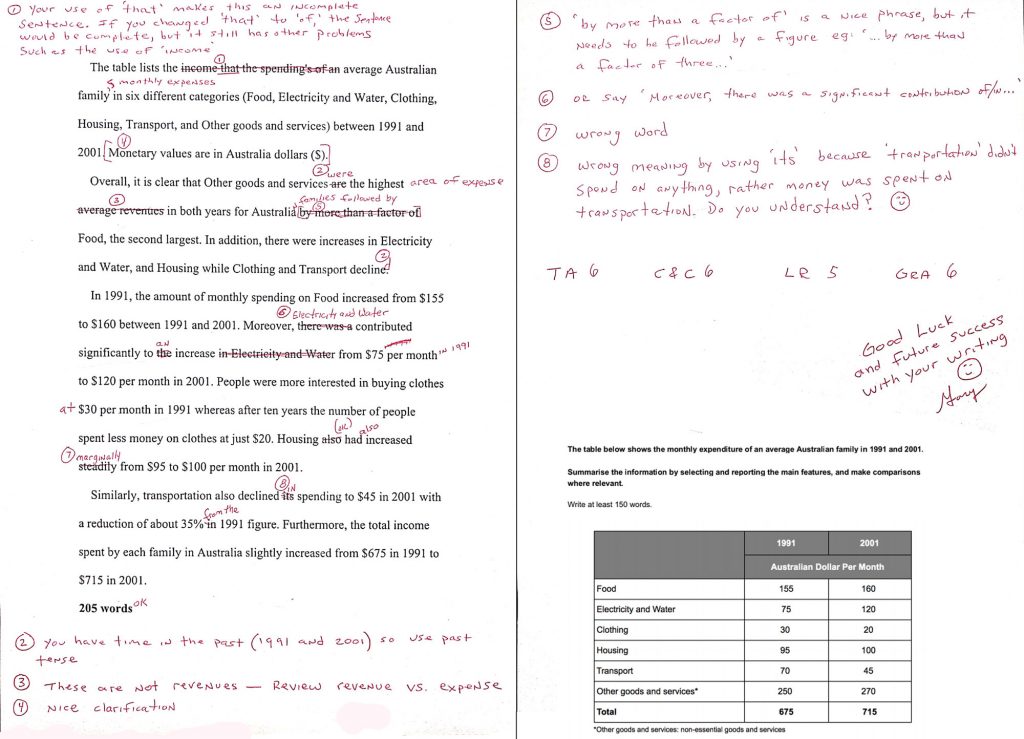 ① Your use of 'that' makes this an incomplete
sentence. If you changed 'that' to 'of', the sentence
would be complete, but it still has other problems
such as the use of 'income'
①
The table lists the income that the spending's of an average Australian
s monthly expenses
family in six different categories (Food, Electricity and Water, Clothing,
Housing, Transport, and Other goods and services) between 1991 and
④
2001. [Monetary values are in Australia dollars ($).]
② were
Overall, it is clear that Other goods and services are the highest area of expense
③ families followed by
average revenues in both years for Australia [by more than a factor of]
⑤
Food, the second largest. In addition, there were increases in Electricity
②
and Water, and Housing while Clothing and Transport decline.
d
In 1991, the amount of monthly spending on Food increased from $155
⑥ Electricity and Water
to $160 between 1991 and 2001. Moreover, there was a contributed
an
significantly to the increase in Electricity and Water from $75 per month in 1991
to $120 per month in 2001. People were more interested in buying clothes
at $30 per month in 1991 whereas after ten years the number of people
(ok) also
spent less money on clothes at just $20. Housing also had increased
⑦ marginally
steadily from $95 to $100 per month in 2001.
⑧ in
Similarly, transportation also declined its spending to $45 in 2001 with
from the
a reduction of about 35% in 1991 figure. Furthermore, the total income
spent by each family in Australia slightly increased from $675 in 1991 to
$715 in 2001.
205 words OK
② You have time in the past (1991 and 2001) so use past
tense
③ These are not revenues – Review revenue vs. expense
④ Nice clarification
⑤ 'by more than a factor of' is a nice phrase, but it
needs to be followed by a figure eg: '... by more than
a factor of three...'
⑥ or say 'Moreover, there was a significant contribution of/in...'
⑦ wrong word
⑧ wrong meaning by using 'its' because 'tranportation' didn't
spend on anything, rather money was spent on
transportation. Do you understand?
TA 6 C&C 6 LR 5 GRA 6
Good Luck
and future success
with your writing
The table below shows the monthly expenditure of an average Australian family in 1991 and 2001.
Summarise the information by selecting and reporting the main features, and make comparisons
where relevant.
Write at least 150 words.
1991 2001
Australian Dollar Per Month
Food 155 160
Electricity and Water 75 120
Clothing 30 20
Housing 95 100
Transport 70 45
Other goods and services* 250 270
Total 675 715
*Other goods and services: non-essential goods and services